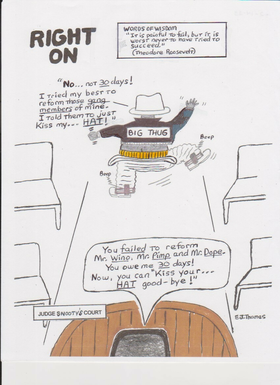 RIGHT
ON
WORDS OF WISDOM
"It is painful to fail, but it is
worst never to have tried to
succeed."
(Theodore Roosevelt)
"No... not 30 days!
I tried my best to
reform those gang
members of mine.
I told them to just
Kiss my--- HAT!"
BIG THUG
Boop
Boop
You failed to reform
Mr. Wino, Mr. Pimp and Mr. Dope.
You owe me 30 days!
Now, you can "Kiss your---
HAT good-bye!"
JUDGE SNOOTY'S COURT
E.J. Thomas